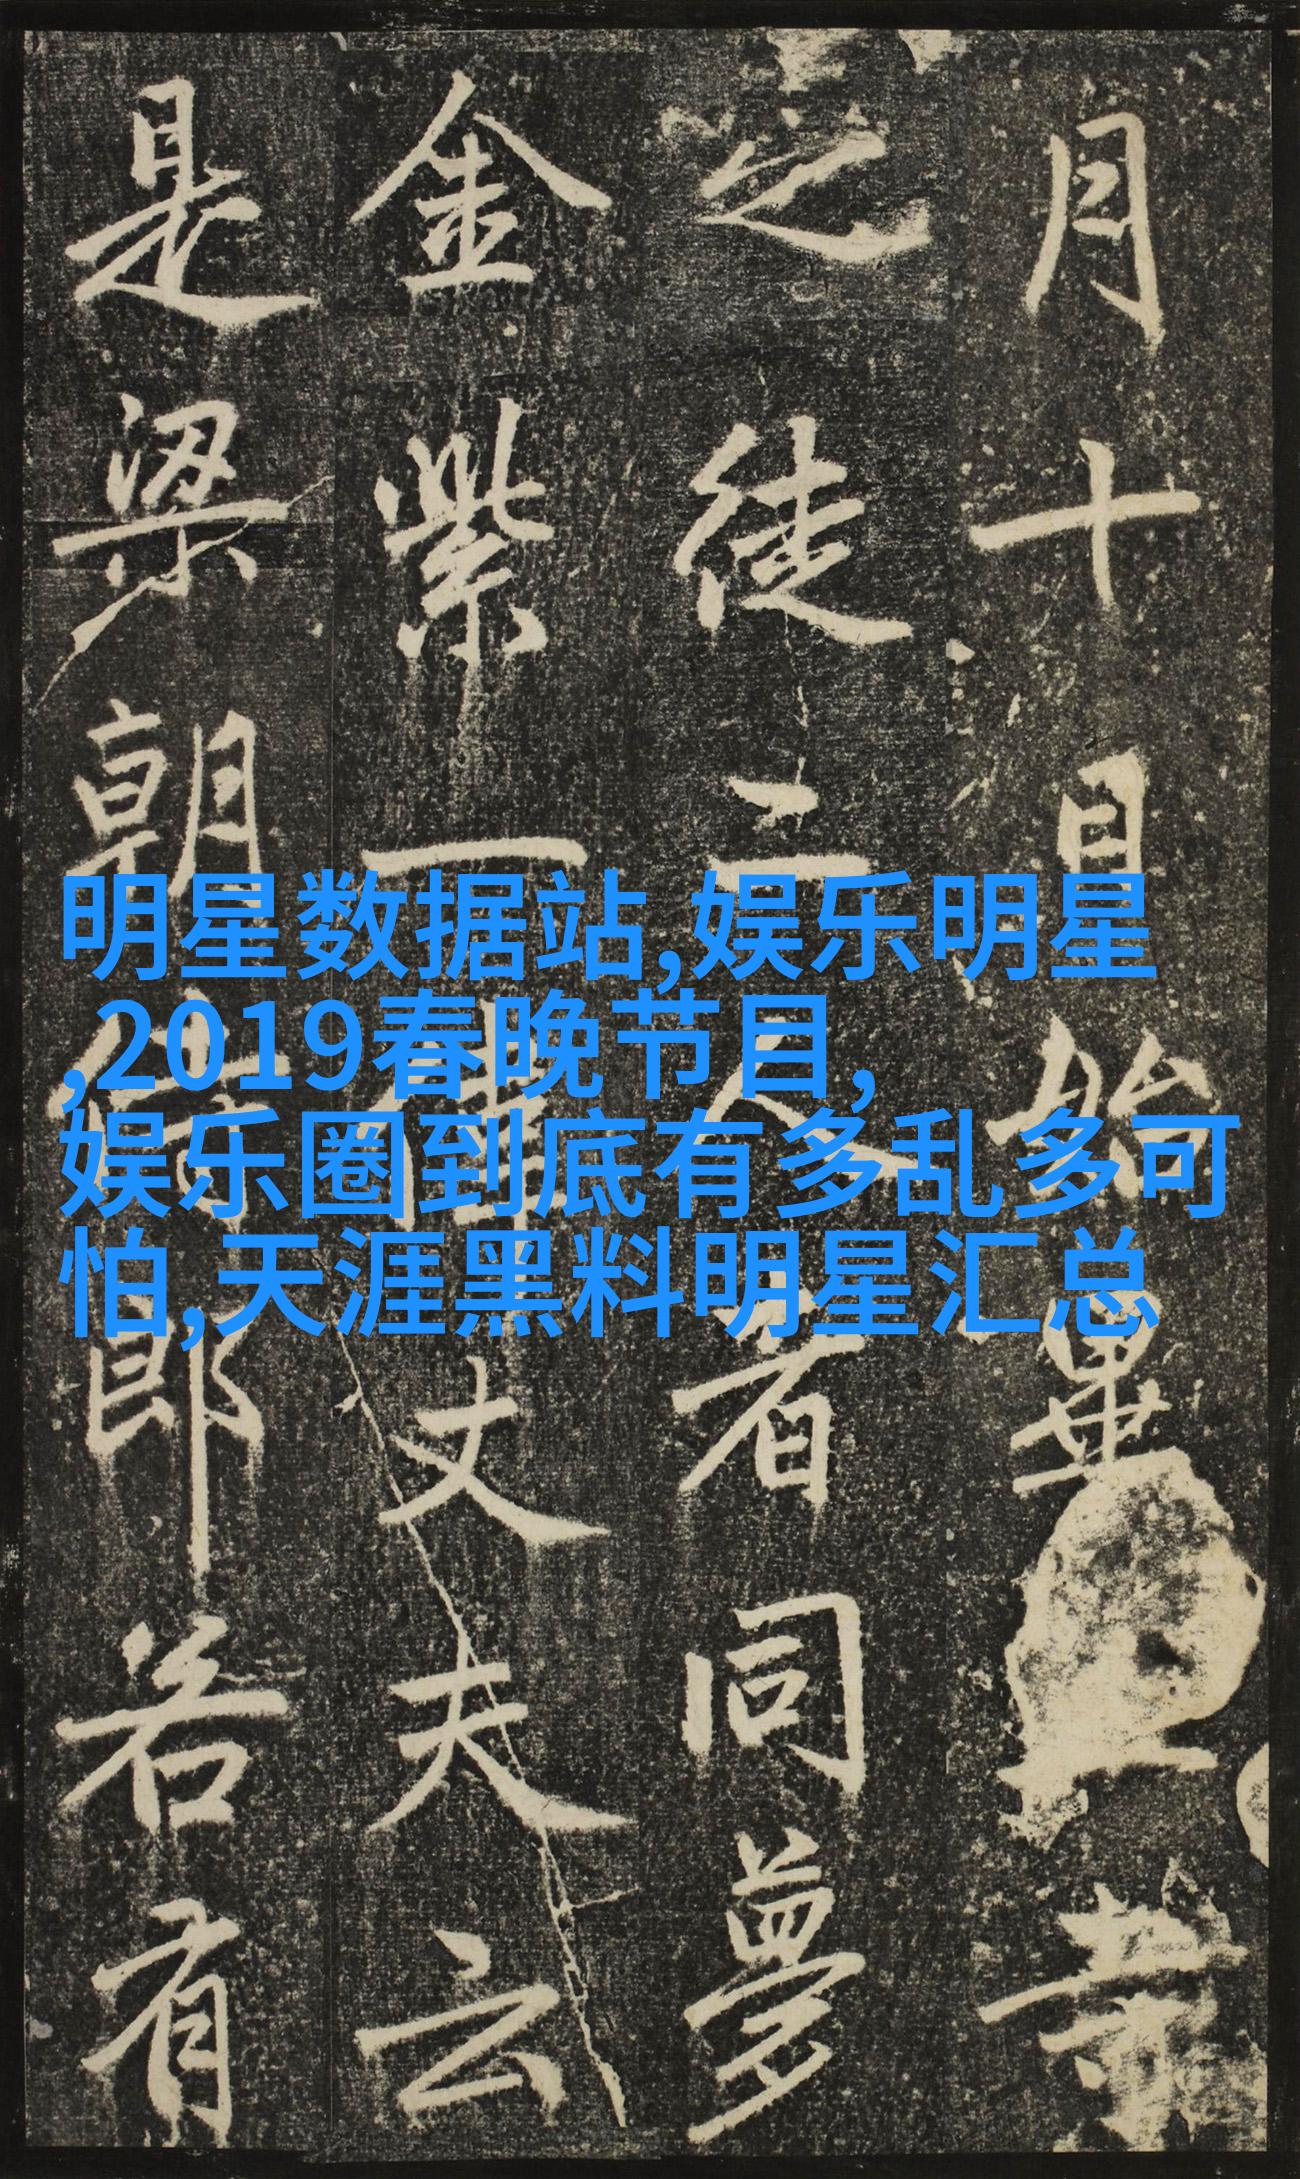 月十日始畢
之徒二人者同夢
金紫一偉丈夫云
是梁朝侍郎若有
明星数据站,娱乐明星
,2019春晚节目,
娱乐圈到底有多乱多可
怕,天涯黑料明星汇总